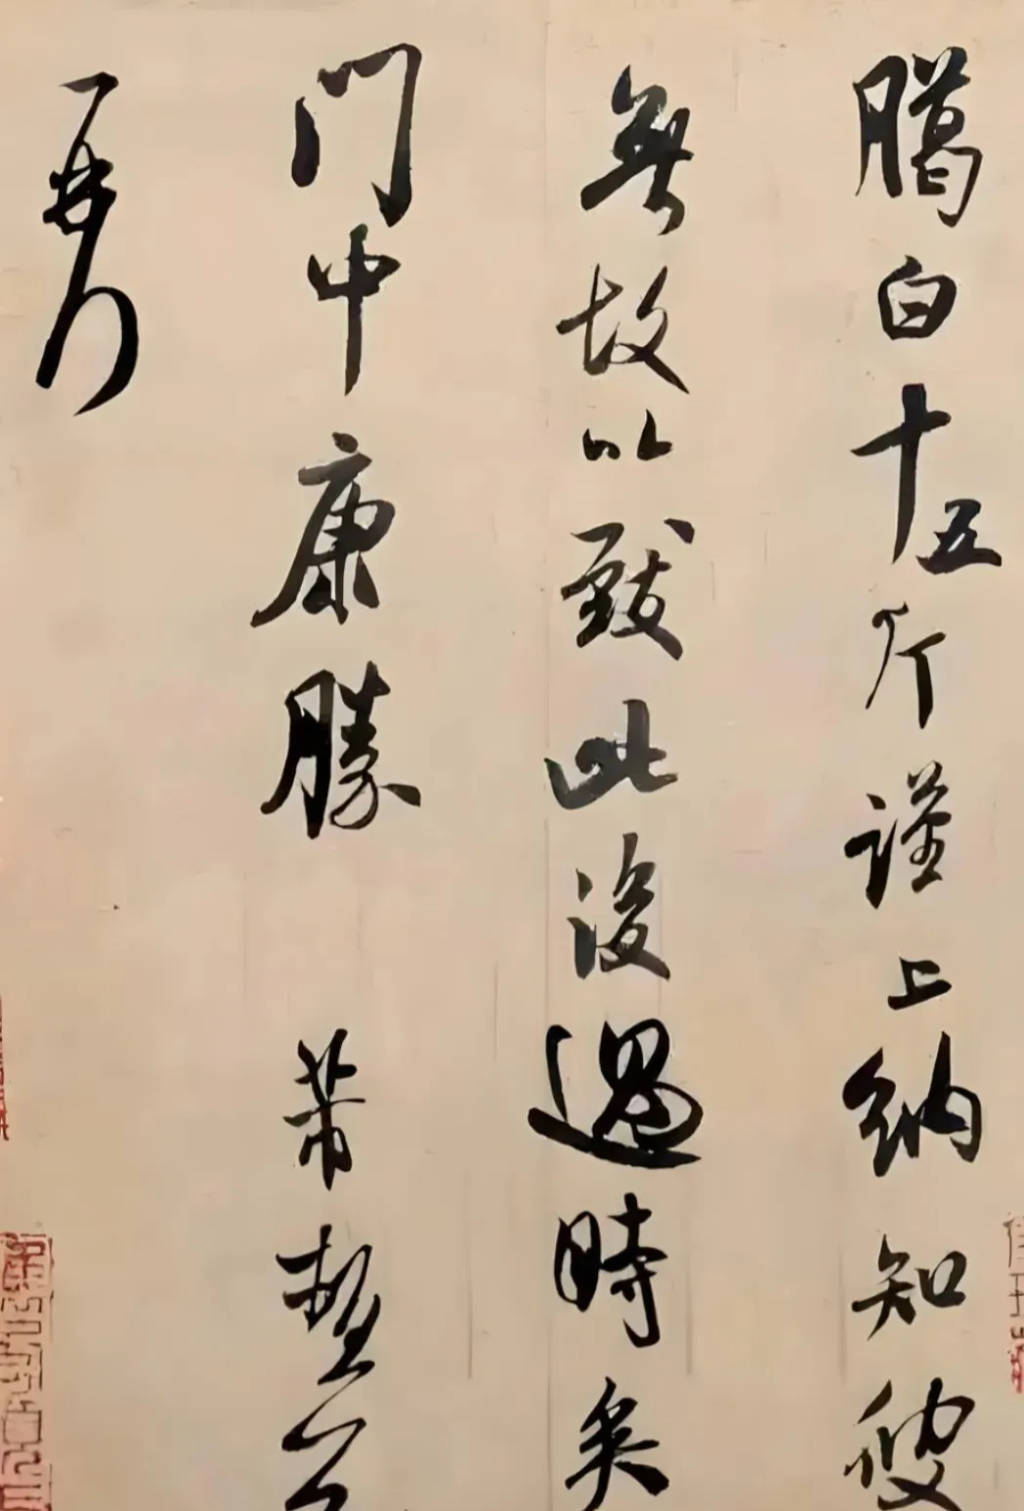 臈白十五斤謹上納知彼
無故以致此後過時矣
門中康勝 芾